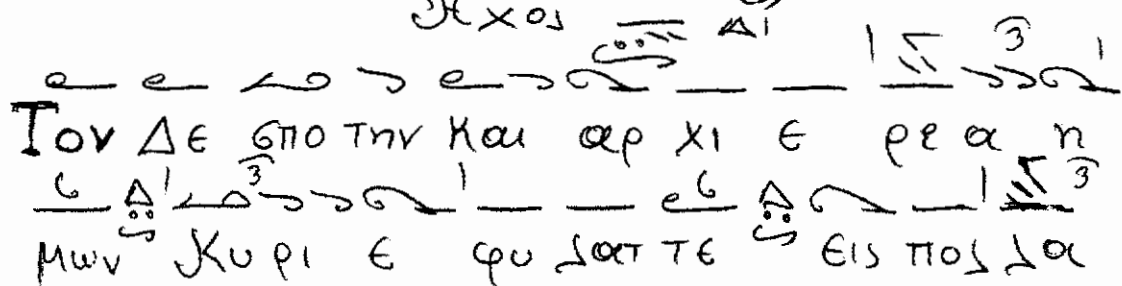 Ηχος Δι
Τον Δε σπο την και αρ χι ε ρε α η
μων Κυ ρι ε φυ λατ τε εις πολ λα